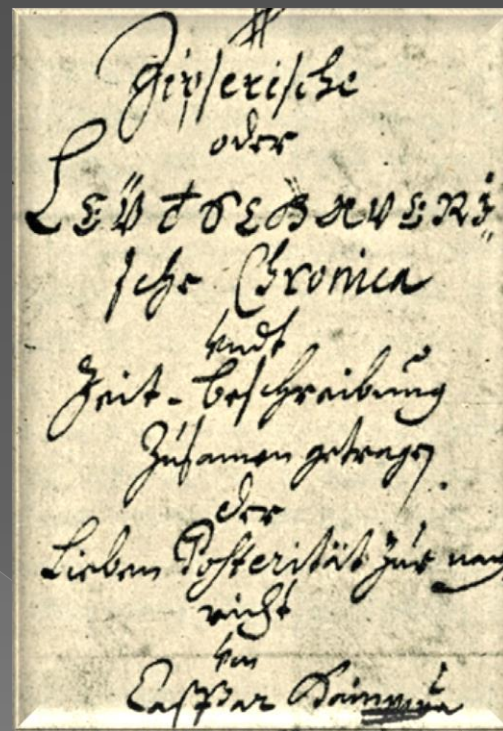 Zipserische
oder
LEÜTSCHAVERI„
sche Chronica
undt
Zeit-beschreibung
Zusamen getragen
der
Lieben Posterität zur nach
richt
von
Caspar Hain